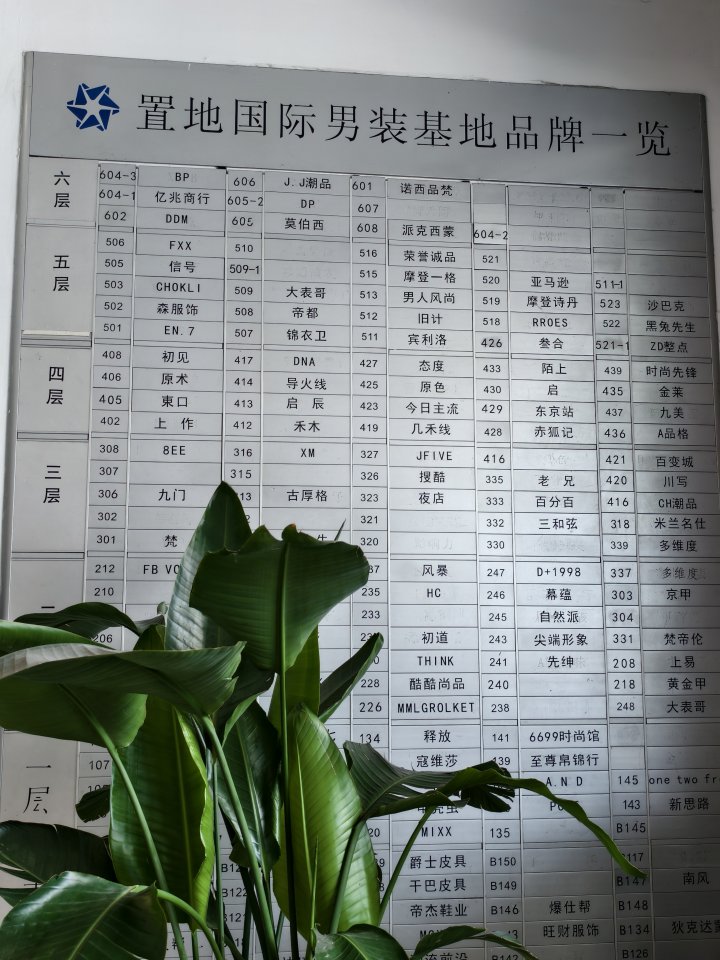 置地国际男装基地品牌一览
六层
604-3 BP 606 J.J潮品 601 诺西品梵
604-1 亿兆商行 605-2 DP 607
602 DDM 605 莫伯西 608 派克西蒙 604-2
五层
506 FXX 510 516 荣誉诚品 521
505 信号 509-1 515 摩登一格 520 亚马逊 511-1
503 CHOKLI 509 大表哥 513 男人风尚 519 摩登诗丹 523 沙巴克
502 森服饰 508 帝都 512 旧计 518 RROES 522 黑兔先生
501 EN.7 507 锦衣卫 511 宾利洛 426 叁合 521-1 ZD整点
四层
408 初见 417 DNA 427 态度 433 陌上 439 时尚先锋
406 原术 414 导火线 425 原色 430 启 435 金莱
405 東口 413 启辰 423 今日主流 429 东京站 437 九美
402 上作 412 禾木 419 几禾线 428 赤狐记 436 A品格
三层
308 8EE 316 XM 327 JFIVE 416 421 百变城
307 315 326 搜酷 335 老兄 420 川写
306 九门 古厚格 323 夜店 333 百分百 416 CH潮品
302 321 332 三和弦 318 米兰名仕
301 梵 320 330 339 多维度
212 FB 风暴 247 D+1998 337 多维度
210 235 HC 246 幕蕴 303 京甲
233 245 自然派 304
206 初道 243 尖端形象 331 梵帝伦
THINK 241 先绅 208 上易
228 酷酷尚品 240 218 黄金甲
226 MMLGROLKET 238 248 大表哥
一层
134 释放 141 6699时尚馆
107 寇维莎 139 至尊帛锦行
A.N.D 145 one two
143 新思路
MIXX 135 B145
爵士皮具 B150
干巴皮具 B149 B147 南风
帝杰鞋业 B146 爆仕帮 B148
旺财服饰 B134 狄克达
B126